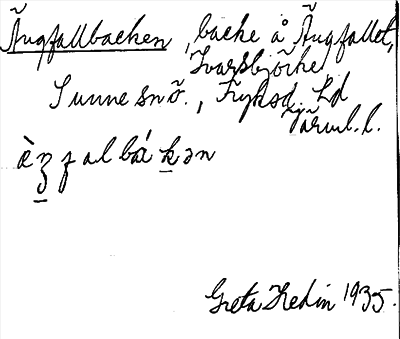 Ängfallbacken, backe å Ängfallet,
Ivarsbjörke
Sunne sn ö., Fryksd. Hd
Värml. l.
Greta Hedin 1935.